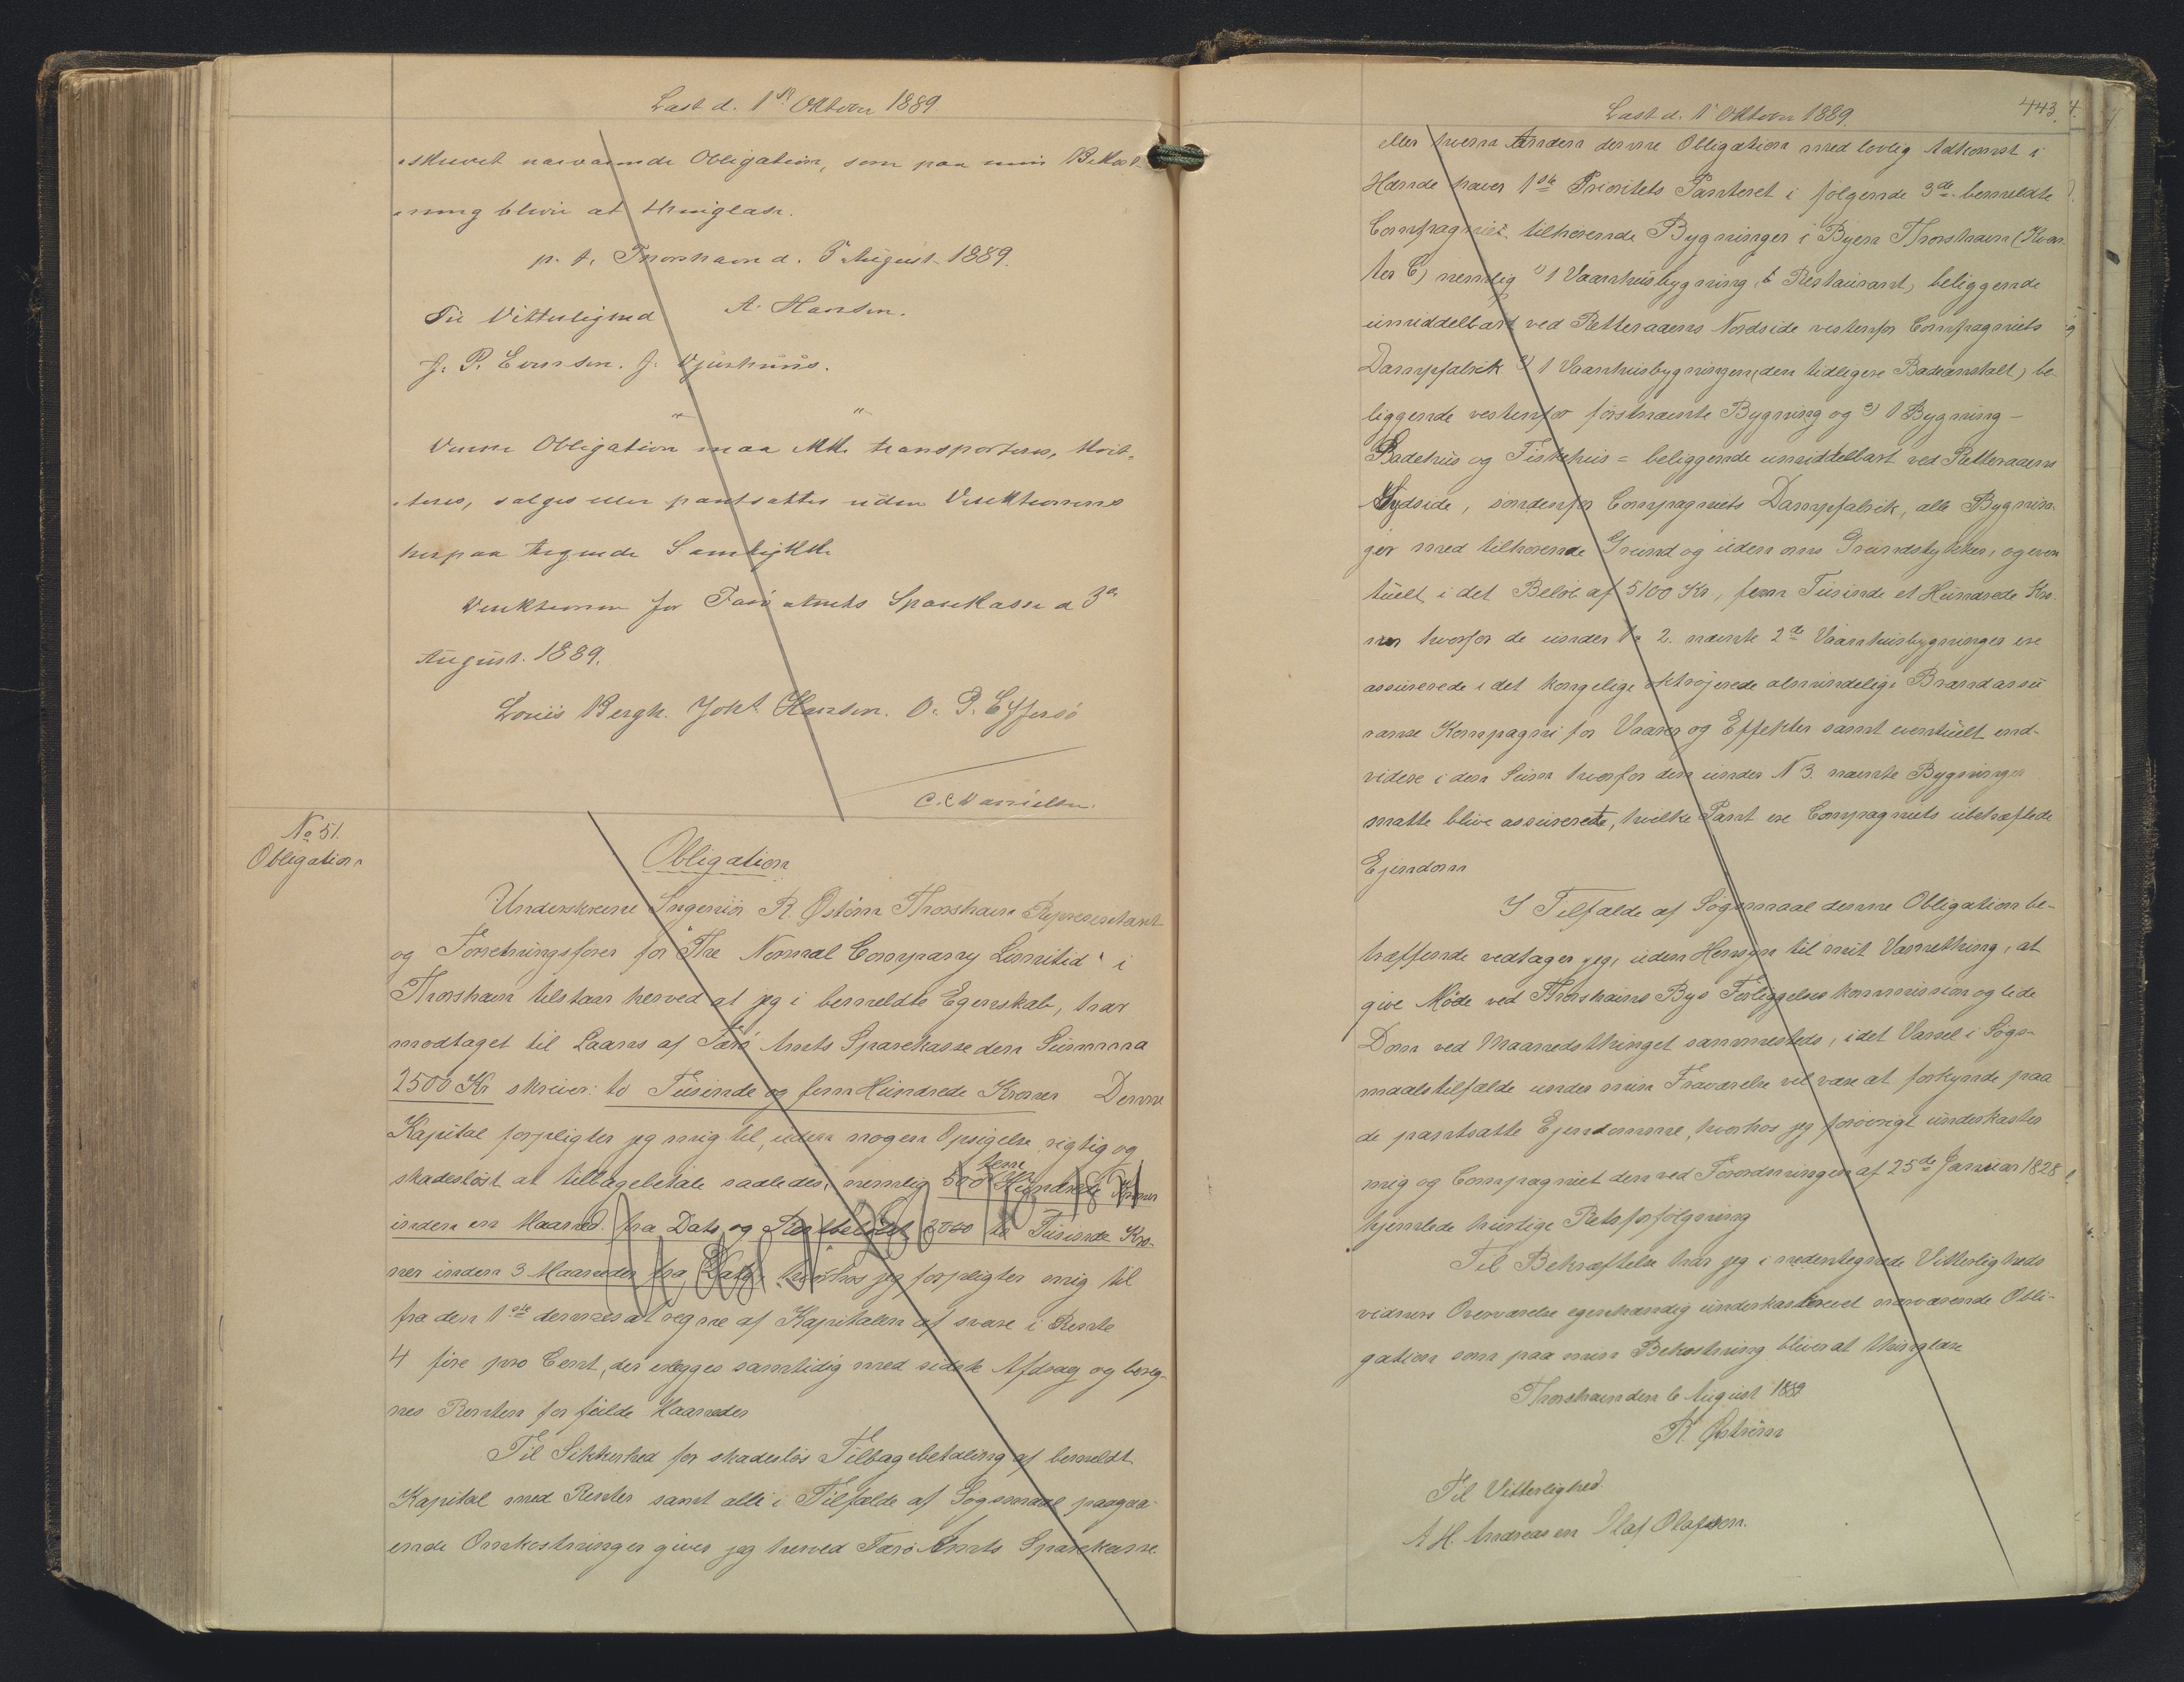 Læst d. 1ste Oktober 1889
-skrevet nærværende Obligation, som paa min Bekost-
-ning bliver at thinglæse.
p. t. Thorshavn d. 3 August 1889.
A. Hansen.
Til Vitterlighed
J. P. Evensen. J. Djurhuus.
" "
Denne Obligation maa ikke transporteres, kvit-
-teres, sælges eller pantsættes uden Direktionens
herpaa tegnede Samtykke
Direktionen for Færø Amts Sparekasse d 3de
August. 1889.
Louis Bergh. Joh. Hansen. O. P. Effersö
C. C. Danielsen.
No 51.
Obligation
Obligation
Underskrevne Ingeniör R. Öström Thorshavn Repræsentant
og Forretningsförer for "The Normal Company Limitid" i
Thorshavn tilstaar herved at jeg i bemeldte Egenskab, har
modtaget til Laans af Færö Amts Sparekasse den Summa
2500 Kr skriver: to Tusinde og fem Hundrede Kroner Denne
Kapital forpligter jeg mig til, uden nogen Opsigelse rigtig og
skadeslöst at tilbagebetale saaledes, nemlig 500 fem Hundrede Kroner
inden en Maaned fra Dato og Restbelöbet 2000 to Tusinde Kro-
ner inden 3 Maaneder fra Dato, hvorhos jeg forpligter mig til
fra den 1ste dennes at regne af Kapitalen at svare i Rente
4 fire pro Cent, der erlægges samtidig med sidste Afdrag og bereg-
nes Renten for fulde Maaneder
Til Sikkerhed for skadeslös Tilbagebetaling af bemeldt
Kapital med Renter samt alle i Tilfælde af Sögsmaal paagaa-
ende Omkostninger giver jeg herved Færö Amts Sparekasse
443.
Læst d. 1 Oktober 1889.
eller hvem Anden denne Obligation med lovlig Adkomst i
Hænde haver 1ste Prioritets Panteret i fölgende 3de bemeldte
Compagniet tilhörende Bygninger i Byen Thorshavn (Kvar-
ter C) nemlig 1) 1 Vaanhusbygning, (Restaurant) beliggende
umiddelbart ved Retteraaens Nordside vestenfor Compagniets
Dampfabrik 2) 1 Vaanhusbygningen (den tidligere Badeanstalt) be-
liggende vestenfor förstnævnte Bygning og 3) 1 Bygning -
Badehus og Fiskehus = beliggende umiddelbart ved Retteraaens
Sydside, söndenfor Compagniets Dampfabrik, alle Bygnin-
ger med tilhörende Grund og uden oms Grundstykker, og even
tuelt i det Belöb af 5100 Kr, fem Tusinde et Hundrede Kro-
ner hvorfor de under 1 & 2. nævnte 2de Vaanhusbygninger ere
assurerede i det kongelige oktrojerede almindelige Brandassu
ranse Kompagni for Vaarer og Effekter samt eventuelt end-
videre i den Sum hvorfor den under N 3. nævnte Bygninger
maatte blive assurerede, hvilke Pant ere Compagniets ubehæftede
Ejendom
I Tilfælde af Sögsmaal denne Obligation be-
træffende vedtager jeg, uden Hensyn til mit Værnething, at
give Möde ved Thorshavns Bys Forligelses kommission og lide
Dom ved Maanedsthinget sammesteds, idet Varsel i Sögs-
maalstilfælde under min Fraværelse vil være at forkynde paa
de pantsatte Ejendomme, hvorhos jeg forövrigt underkaster
mig og Compagniet den ved Forordningen af 25de Januar 1828
hjemlede hurtige Retsforfölgning
Til Bekræftelse har jeg i nedentegnede Vitterligheds
vidners Overværelse egenhændig underskrevet nærværende Obli-
gation som paa min Bekostning bliver at thinglæse
Thorshavn den 6 August 1889
R. Öström
Til Vitterlighed
A H. Andreasen Olaf Olafsson.